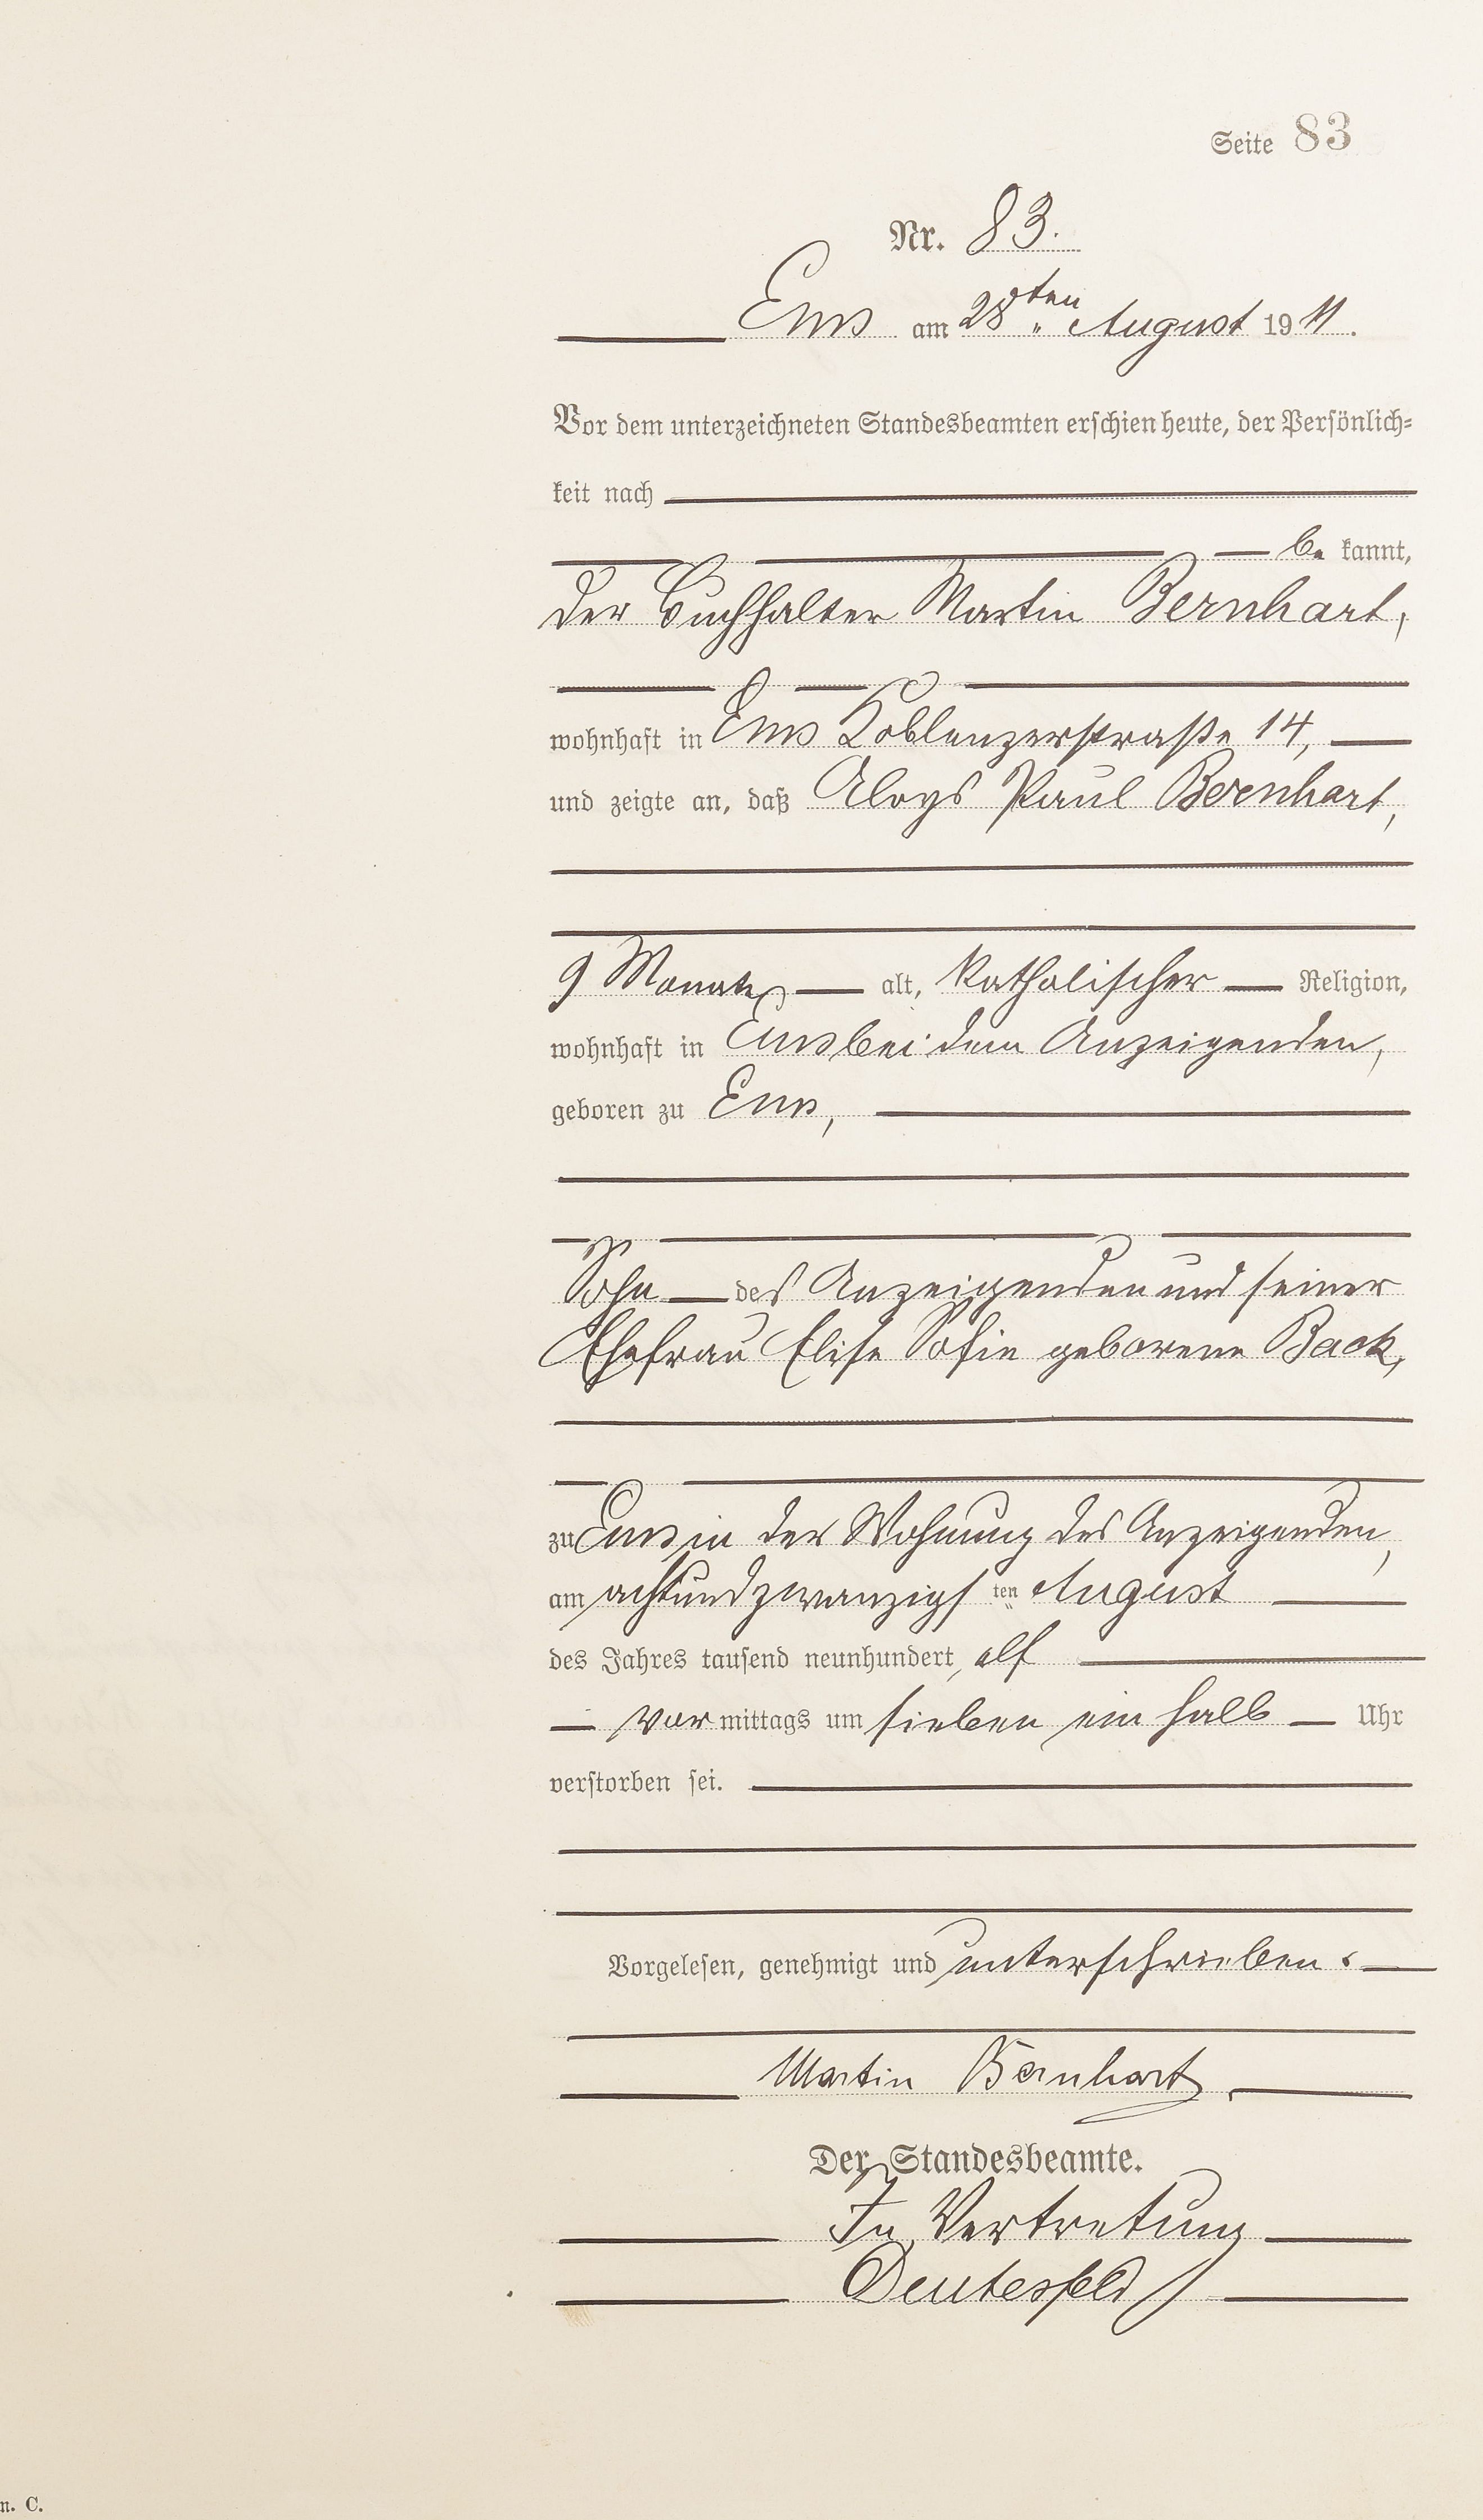 Seite 83
Nr. 83.
Ems am 28ten August 1911.
Vor dem unterzeichneten Standesbeamten erschien heute, der Persönlich-
keit nach
be kannt,
der Buchhalter Martin Bernhart,
wohnhaft in Ems Koblenzerstraße 14,
und zeigte an, daß Aloys Paul Bernhart,
9 Monate alt, katholischer Religion,
wohnhaft in Ems bei dem Anzeigenden,
geboren zu Ems,
Sohn des Anzeigenden und seiner
Ehefrau Elise Sofie geborene Back,
zu Ems in der Wohnung des Anzeigenden,
am achtundzwanzigsten August
des Jahres tausend neunhundert elf
vor mittags um sieben ein halb Uhr
verstorben sei.
Vorgelesen, genehmigt und unterschrieben.
Martin Bernhart
Der Standesbeamte.
In Vertretung
Deutesfeld
n. C.